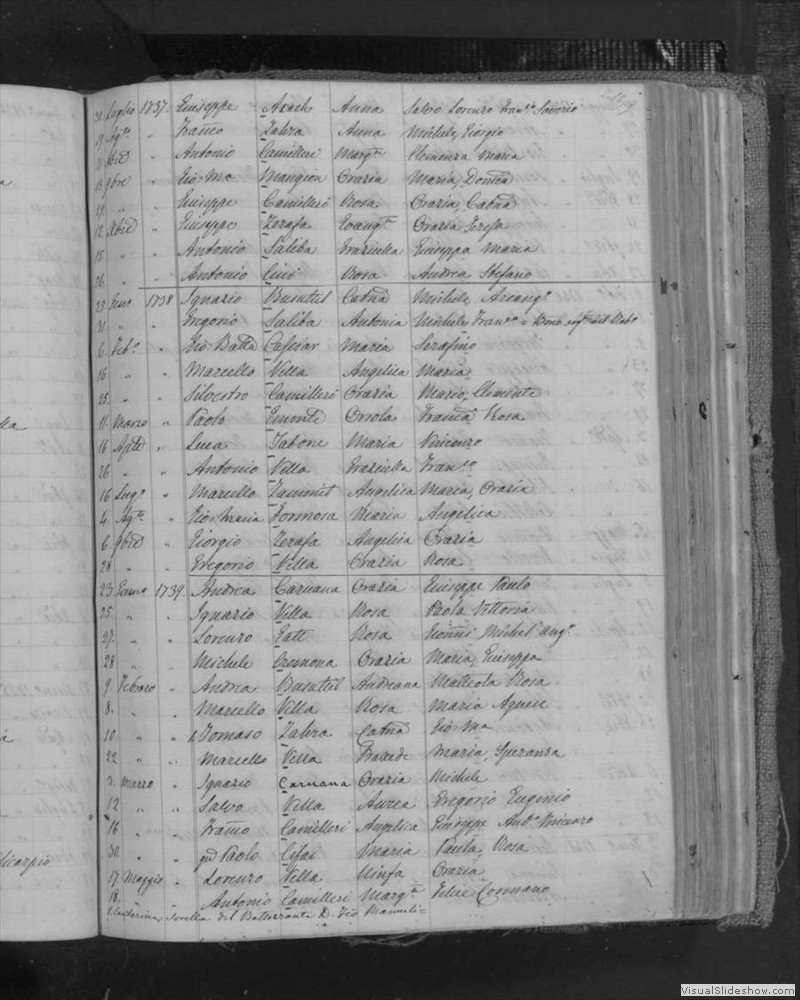 31 Luglio 1737. Giuseppe Axach Anna Salvo Lorenzo Fran.co Saverio
19 Ag.to " Franco Zahra Anna Michele, Giorgio
" Antonio Camilleri Marg.ta Clemenza Maria
13 9bre " Gio: Ma Mangion Grazia Maria, Domca
" " Giuseppe Camilleri Rosa Grazia, Catna
12 Xbre " Giuseppe Zerafa Evang.ta Grazia Teresa
15 " " Antonio Saliba Graziulla Giuseppa Maria
26 " " Antonio Cini Rosa Andrea Stefano
23 Genro 1738 Ignazio Busuttil Catna Michele Arcang.o
31 " " Gregorio Saliba Antonia Michele Fran.co =
6 Feb.o " Gio: Batta Cassar Maria Serafino
16 " " Marcello Vella Angelica Maria
25 " " Silvestro Camilleri Grazia Mario, Clemente
11 Marzo " Paolo Grazia Franca Rosa
16 Aple " Luca Tabone Maria Vincenzo
26 " " Antonio Vella Graziulla Fran.co
16 Lug.o " Marcello Zammit Angelica Maria, Grazia
4 Ag.to " Gio: Maria Formosa Maria Angelica
6 9bre " Giorgio Zerafa Angelica Grazia
28 " " Gregorio Vella Grazia Rosa
23 Genro 1739 Andrea Caruana Grazia Giuseppe Paulo
25 " " Ignazio Vella Rosa Paola Vittoria
27 " " Lorenzo Gatt Rosa Gionni Michel'ang.o
28 " " Michele Cremona Grazia Maria, Giuseppa
9 Febraro " Andrea Busuttil Andreana Matteola Rosa
8 " " Marcello Vella Rosa Maria Agnese
10 " " Tomaso Zahra Catna Gio: Ma
22 " " Marcello Vella Prassede Maria, Speranza
3 Marzo " Ignazio Caruana Grazia Michele
12 " " Salvo Vella Aurea Gregorio Eugenio
16 " " Franco Camilleri Angelica Giuseppe Ant.o Vincenzo
30 " " qm Paolo Cifai Maria Paula, Rosa
17 Maggio " Lorenzo Vella Ninfa Grazia
18 " " Antonio Camilleri Marg.ta Felice Cosmano
Sorella del Battezzante D. Gio Manueli =
licarpio
VisualSlideshow.com